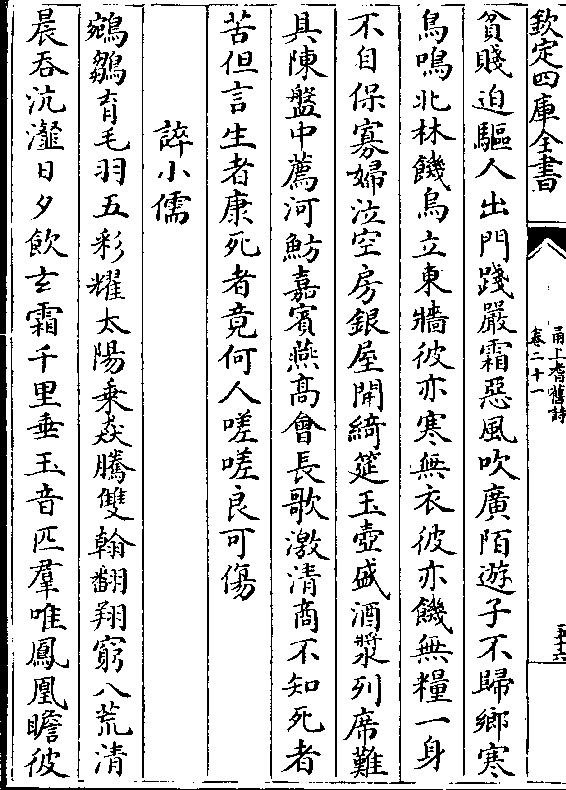 欽定四庫全書
甬上耆舊詩
卷二十一
貧賤迫驅人出門踐嚴霜惡風吹廣陌遊子不歸鄉寒
鳥鳴北林饑烏立東牆彼亦寒無衣彼亦饑無糧一身
不自保寡婦泣空房銀屋開綺筵玉壺盛酒漿列席難
具陳盤中薦河魴嘉賓燕髙會長歌激清商不知死者
苦但言生者康死者竟何人嗟嗟良可傷
誶小儒
鵷鶵育毛羽五彩耀太陽乘焱騰雙翰翻翔窮八荒清
晨吞沆瀣日夕飲玄霜千里垂玉音匹羣唯鳳凰瞻彼